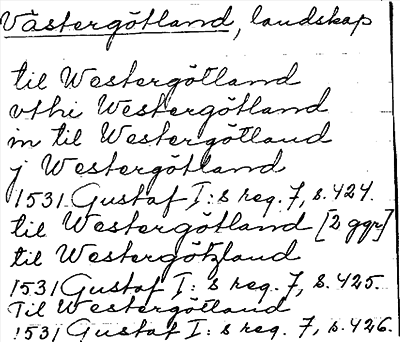 Västergötland, landskap
til Westergötland
vthi Westergötland
in til Westergötland
j Westergötland
1531 Gustaf I:s reg. 7, s. 424.
til Westergötland [2 ggr]
til Westergötzland
1531 Gustaf I:s reg. 7, s. 425.
Til Westergötland
1531 Gustaf I:s reg. 7, s. 426.